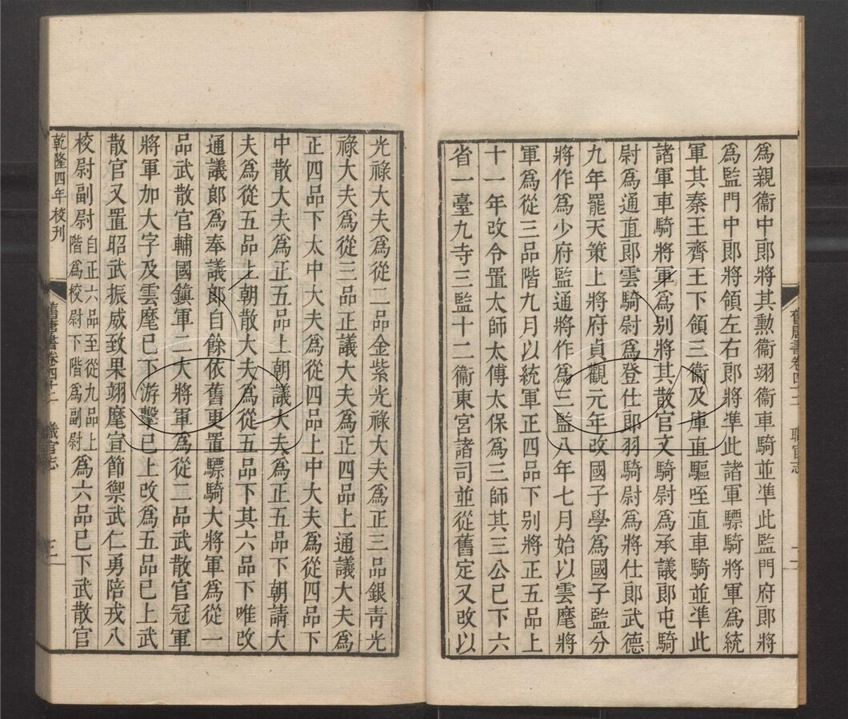 為親衞中郎將其勲衞翊衞車騎並準此監門府郎將
為監門中郎將領左右郎將準此諸軍驃騎將軍為統
軍其秦王齊王下領三衞及庫直驅咥直車騎並準此
諸軍車騎將軍為别將其散官文騎尉為承議郎屯騎
尉為通直郎雲騎尉為登仕郎羽騎尉為將仕郎武德
九年罷天策上將府貞觀元年改國子學為國子監分
將作為少府監通將作為三監八年七月始以雲麾將
軍為從三品階九月以統軍正四品下别將正五品上
十一年改令置太師太傅太保為三師其三公已下六
省一臺九寺三監十二衞東宮諸司並從舊定又改以
舊唐書卷四十二 職官志 二
光祿大夫為從二品金紫光祿大夫為正三品銀青光
祿大夫為從三品正議大夫為正四品上通議大夫為
正四品下太中大夫為從四品上中大夫為從四品下
中散大夫為正五品上朝議大夫為正五品下朝請大
夫為從五品上朝散大夫為從五品下其六品下唯改
通議郎為奉議郎自餘依舊更置驃騎大將軍為從一
品武散官輔國鎮軍二大將軍為從二品武散官冠軍
將軍加大字及雲麾已下游擊已上改為五品已上武
散官又置昭武振威致果翊麾宣節禦武仁勇陪戎八
校尉副尉自正六品至從九品上階為校尉下階為副尉為六品已下武散官
乾隆四年校刊 舊唐書卷四十二 職官志 三